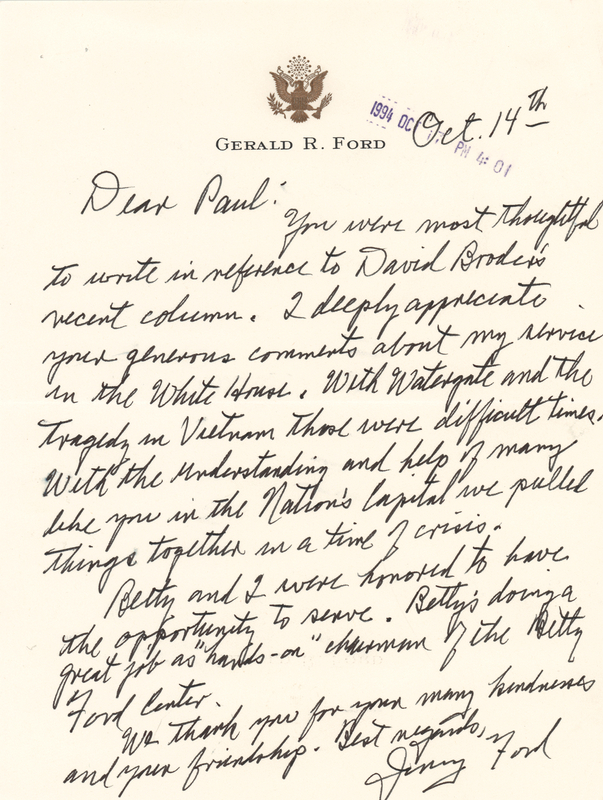 Oct. 14th
1994 OC
PM 4:01
GERALD R. FORD
Dear Paul:
You were most thoughtful
to write in reference to David Broder's
recent column. I deeply appreciate
your generous comments about my service
in the White House. With Watergate and the
tragedy in Vietnam those were difficult times.
With the understanding and help of many
like you in the Nation's Capital we pulled
things together in a time of crisis.
Betty and I were honored to have
the opportunity to serve. Betty's doing a
great job as "hands-on" chairman of the Betty
Ford Center.
We thank you for your many kindnesses
and your friendship. Best regards,
Jerry Ford